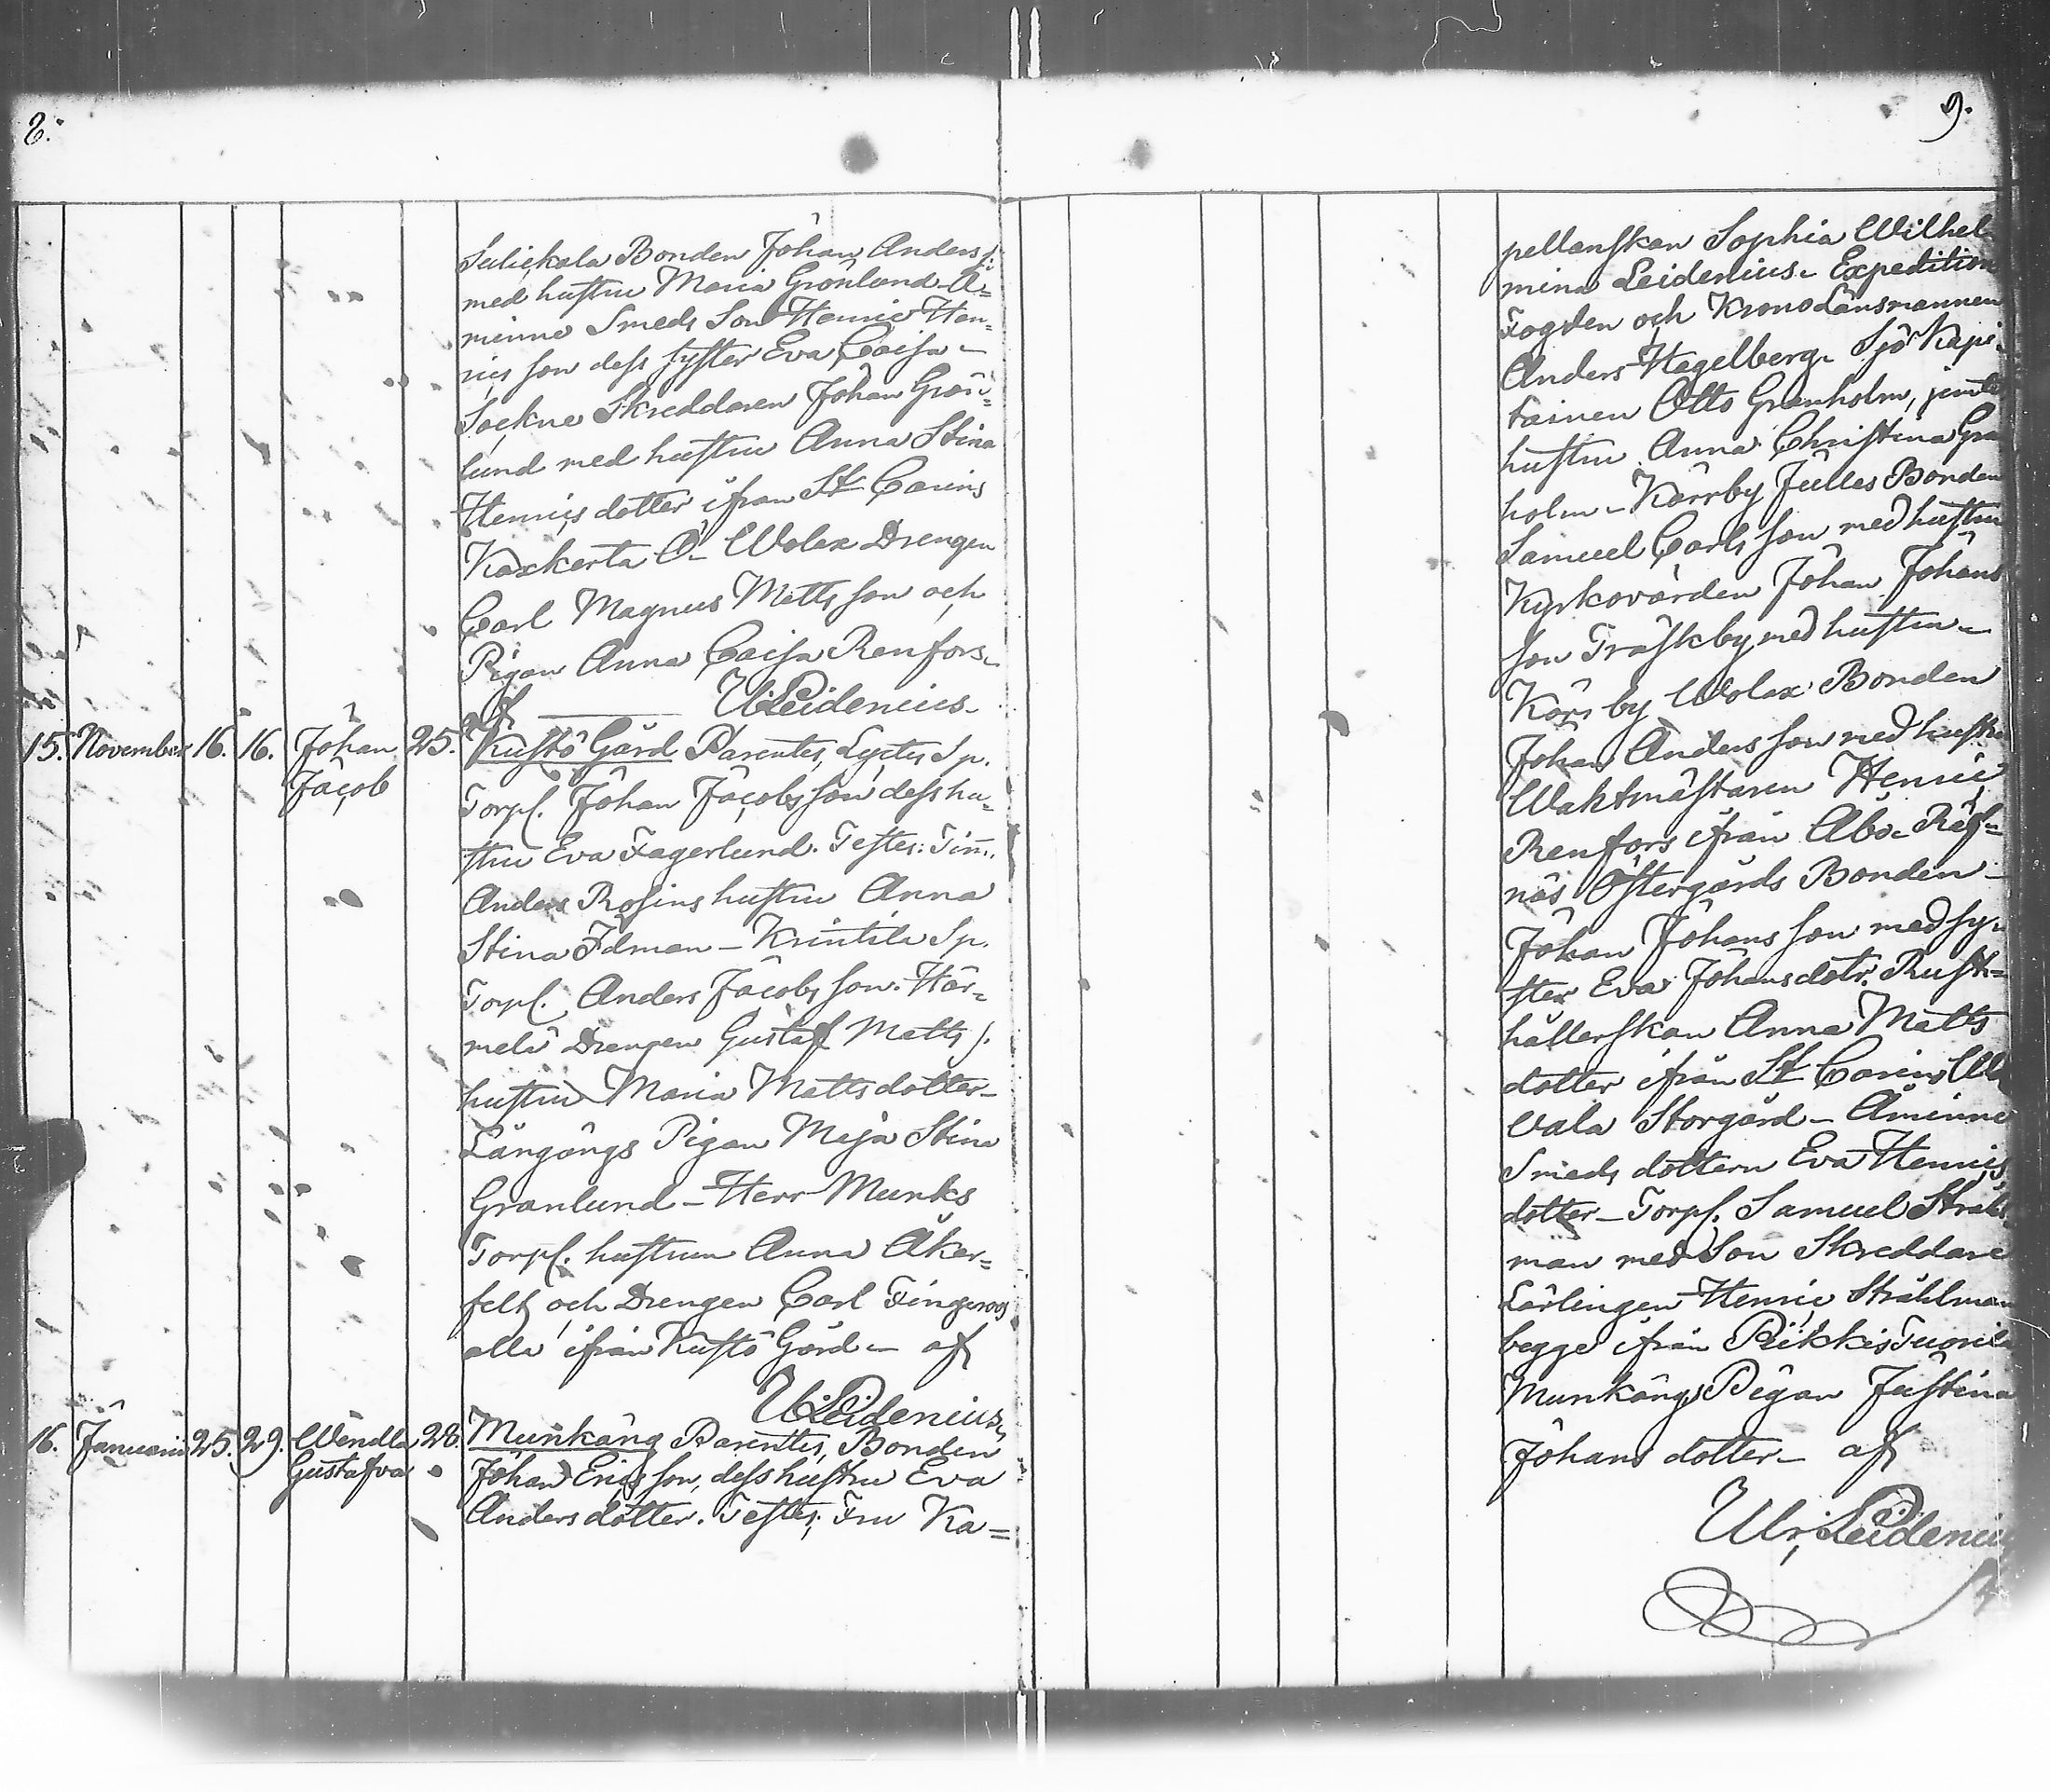 8.
Suliekala Bonden Johan Anders s.
med hustru Maria Grönlund - Å=
minne Smeds Son Henric Hen=
rics son dess syster Eva Caisa -
Sockne Skreddaren Johan Grön=
lund med hustru Anna Stina
Henrics dotter ifrån St Carins
Kaxkerta Ö - Wolax Drengen
Carl Magnus Matts son och
Pigan Anna Caisa Renfors -
af U Leidenius -
15. November 16. 16. Johan 25. Kustö Gård Parentes, Sp.
Jacob
Torpf. Johan Jacobs son dess hu=
stru Eva Fagerlund. Testes: Tim.
Anders Rosins hustru Anna
Stina Idman - Krintila Sp.
Torpf. Anders Jacobs son. Här=
melä Drengen Gustaf Matts s.
hustru Maria Mattsdotter -
Långängs Pigan Maja Stina
Granlund - Herr Munks
Torpf. hustrun Anna Åker=
felt och Drengen Carl Fingeroos
alla ifrån Kustö Gård - af
U Leidenius -
16. Januarii 25. 29. Wendla 28. Munkäng Parentes, Bonden
Gustafva Johan Erics son, dess hustru Eva
Andersdotter. Testes: Fru Ka=
9.
pellanskan Sophia Wilhel
mina Leidenius - Expedition
Fogden och Kronolänsmannen
Anders Hagelberg - Sjö Kapi=
tainen Otto Granholm, jemte
hustru Anna Christina Gra
holm - Kärrby Julles Bonden
Samuel Carls son med hustru
Kyrkovärden Johan Johans
son Träskby med hustru -
Körs by Wolax Bonden
Johan Anders son med hustru
Waktmästaren Henric
Renfors ifrån Åbo - Räf=
näs Östergårds Bonden -
Johan Johans son med sy=
ster Eva Johansdotr. Rust=
hållerskan Anna Matts
dotter ifrån St Carins
vala Storgård - Åminne
Smeds dottern Eva Henrics
dotter - Torpf. Samuel Stråhl
man med Son Skreddare
Lärlingen Henric Stråhlman
begge ifrån Pikkis Tuorila
Munkängs Pigan Justina
Johans dotter - af
Ulr. Leidenius